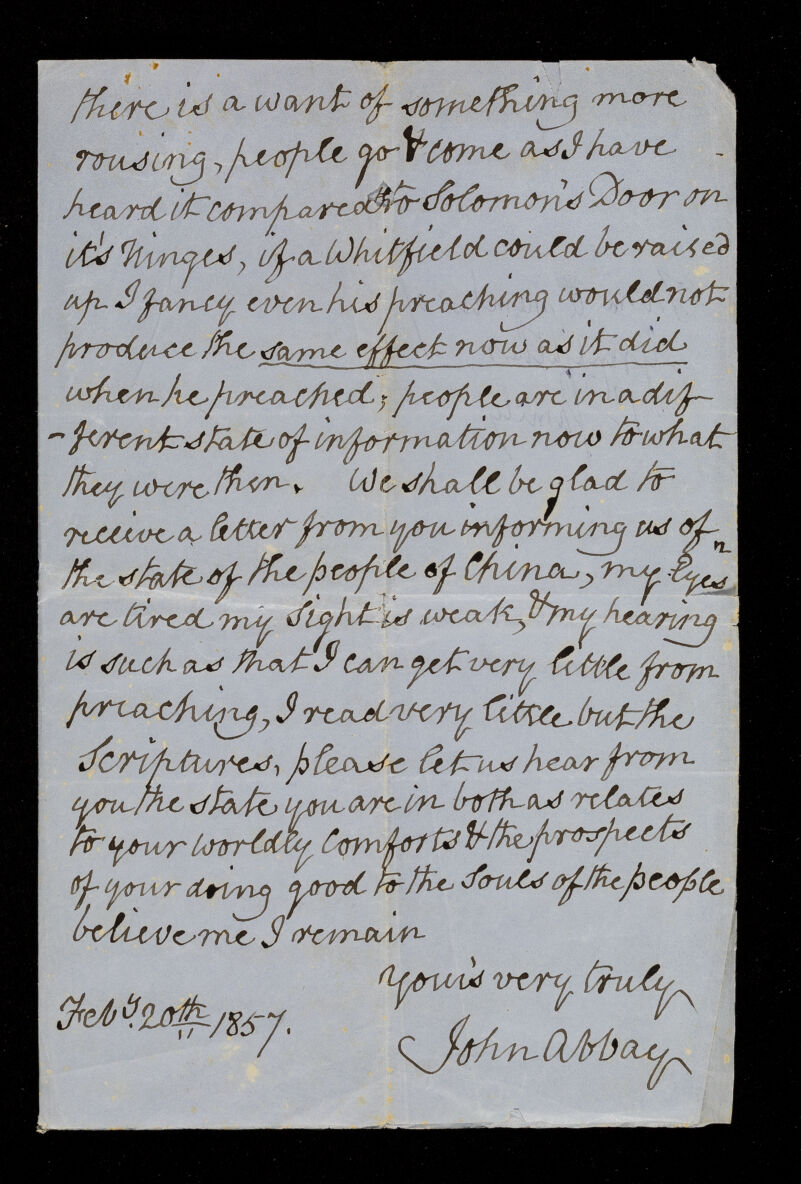 there is a want of something more
rousing, people go & come as I have
heard it compared to Solomon's Door on
it's Hinges, if a Whitfield could be raised
up I fancy even his preaching would not
produce the same effect now as it did
when he preached; people are in a dif
-ferent state of information now to what
they were then. We shall be glad to
receive a letter from you informing us of
the state of the people of China, my Eyes
are tired my Sight is weak, & my hearing
is such as that I can get very little from
preaching, I read very little but the
Scriptures, please let us hear from
you the state you are in both as relates
to your worldly Comforts & the prospects
of your doing good to the Souls of the people
believe me I remain
Your's very truly
Feby. 20th 1857.
John Abbay